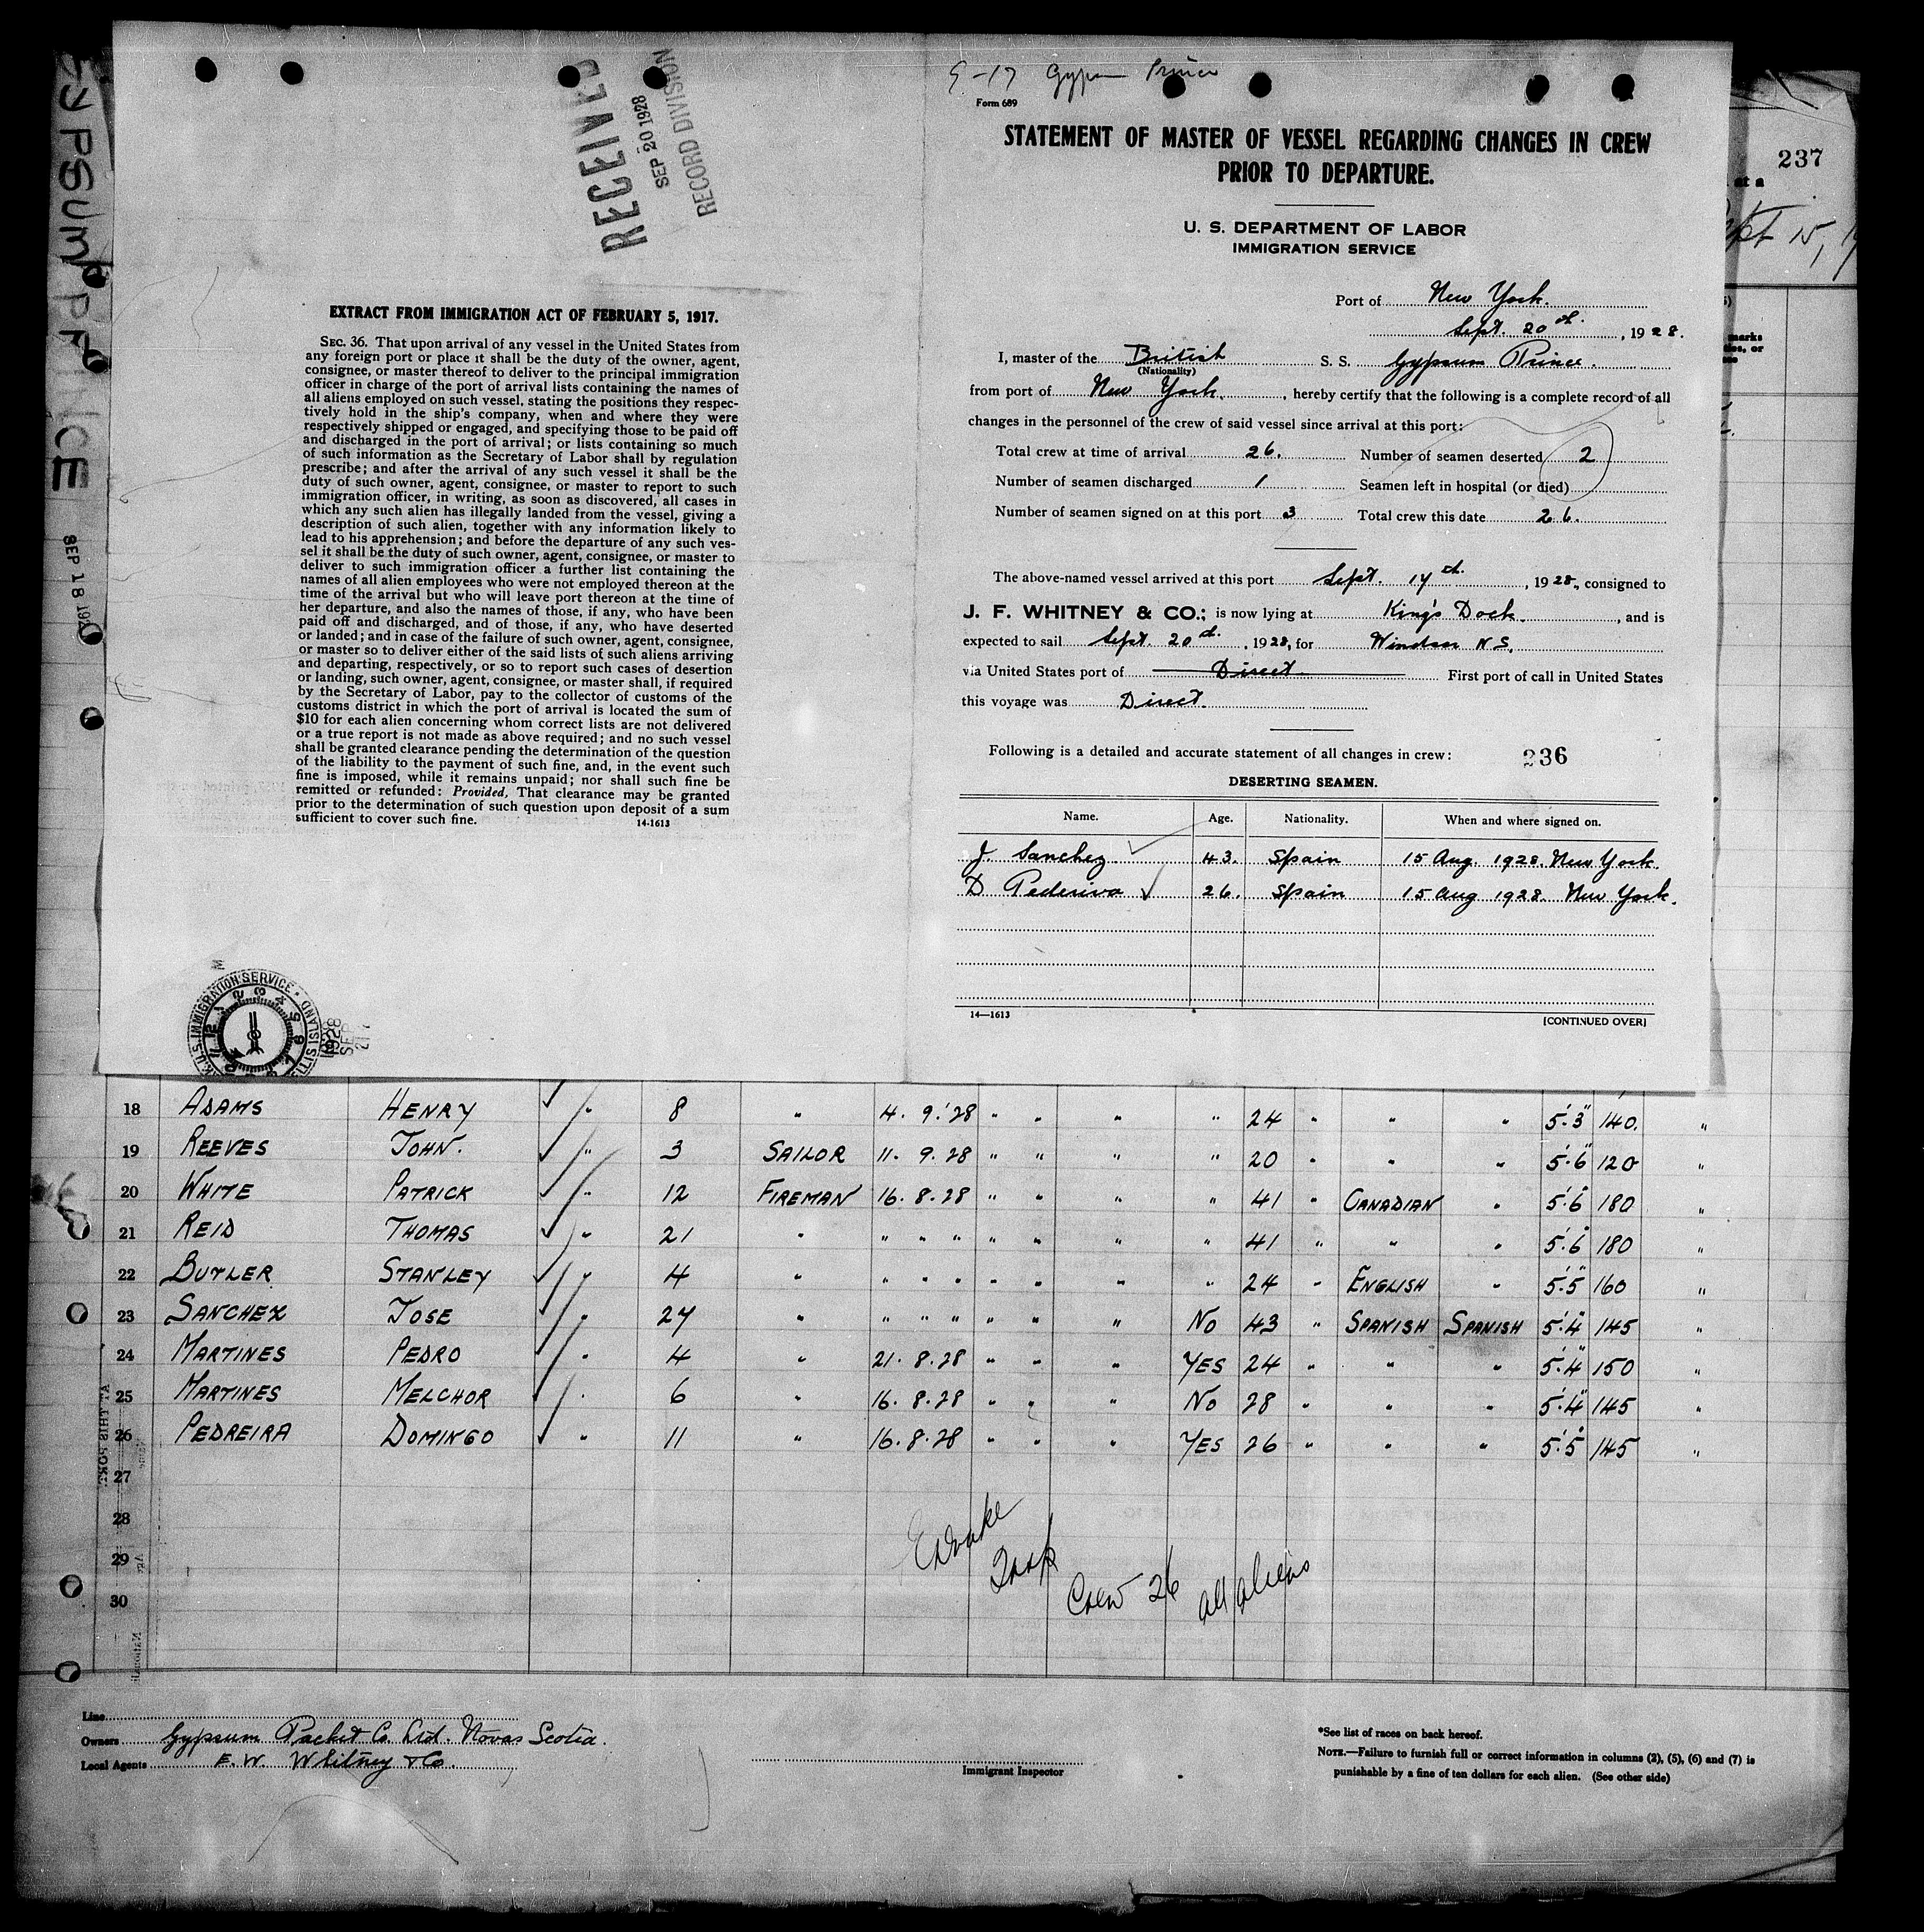 GYPSUM PRINCE
SEP 18 192
RECEIVED
SEP 20 1928
RECORD DIVISION
EXTRACT FROM IMMIGRATION ACT OF FEBRUARY 5, 1917.
SEC. 36. That upon arrival of any vessel in the United States from
any foreign port or place it shall be the duty of the owner, agent,
consignee, or master thereof to deliver to the principal immigration
officer in charge of the port of arrival lists containing the names of
all aliens employed on such vessel, stating the positions they respec-
tively hold in the ship's company, when and where they were
respectively shipped or engaged, and specifying those to be paid off
and discharged in the port of arrival; or lists containing so much
of such information as the Secretary of Labor shall by regulation
prescribe; and after the arrival of any such vessel it shall be the
duty of such owner, agent, consignee, or master to report to such
immigration officer, in writing, as soon as discovered, all cases in
which any such alien has illegally landed from the vessel, giving a
description of such alien, together with any information likely to
lead to his apprehension; and before the departure of any such ves-
sel it shall be the duty of such owner, agent, consignee, or master to
deliver to such immigration officer a further list containing the
names of all alien employees who were not employed thereon at the
time of the arrival but who will leave port thereon at the time of
her departure, and also the names of those, if any, who have been
paid off and discharged, and of those, if any, who have deserted
or landed; and in case of the failure of such owner, agent, consignee,
or master so to deliver either of the said lists of such aliens arriving
and departing, respectively, or so to report such cases of desertion
or landing, such owner, agent, consignee, or master shall, if required
by the Secretary of Labor, pay to the collector of customs of the
customs district in which the port of arrival is located the sum of
$10 for each alien concerning whom correct lists are not delivered
or a true report is not made as above required; and no such vessel
shall be granted clearance pending the determination of the question
of the liability to the payment of such fine, and, in the event such
fine is imposed, while it remains unpaid; nor shall such fine be
remitted or refunded: Provided, That clearance may be granted
prior to the determination of such question upon deposit of a sum
sufficient to cover such fine. 14-1613
U.S. IMMIGRATION SERVICE
9-17 Gypsum Prince
Form 689
STATEMENT OF MASTER OF VESSEL REGARDING CHANGES IN CREW
PRIOR TO DEPARTURE.
U. S. DEPARTMENT OF LABOR
IMMIGRATION SERVICE
Port of New York.
Sept. 20th, 1928.
I, master of the British S. S. Gypsum Prince.
(Nationality)
from port of New York, hereby certify that the following is a complete record of all
changes in the personnel of the crew of said vessel since arrival at this port:
Total crew at time of arrival 26. Number of seamen deserted 2
Number of seamen discharged 1 Seamen left in hospital (or died)
Number of seamen signed on at this port 3 Total crew this date 26.
The above-named vessel arrived at this port Sept. 17th, 1928, consigned to
J. F. WHITNEY & CO.; is now lying at King's Dock, and is
expected to sail Sept. 20th, 1928, for Windsor N.S.
via United States port of Direct. First port of call in United States
this voyage was Direct.
Following is a detailed and accurate statement of all changes in crew: 236
DESERTING SEAMEN.
Name. Age. Nationality. When and where signed on.
J. Sanchez 43. Spain 15 Aug. 1928. New York.
D. Pederiva 26. Spain 15 Aug 1928. New York.
14—1613 [CONTINUED OVER]
237
at a
Sept 15, 19
18 ADAMS HENRY " 8 " 4. 9. '28 " " " " 24 " " " 5'.3" 140. "
19 REEVES JOHN. " 3 SAILOR 11. 9. 28 " " " " 20 " " " 5'.6" 120 "
20 WHITE PATRICK " 12 FIREMAN 16. 8. 28 " " " " 41 " CANADIAN " 5'.6" 180 "
21 REID THOMAS " 21 " " " " " " " " 41 " " " 5'.6" 180 "
22 BUTLER STANLEY " 4 " " " " " " " " 24 " ENGLISH " 5'.5" 160 "
23 SANCHEZ JOSE " 27 " " " " " " " NO 43 " SPANISH SPANISH 5'.4" 145 "
24 MARTINES PEDRO " 4 " 21. 8. 28 " " " YES 24 " " " 5'.4" 150 "
25 MARTINES MELCHOR " 6 " 16. 8. 28 " " " NO 28 " " " 5'.4" 145 "
26 PEDREIRA DOMINGO " 11 " 16. 8. 28 " " " YES 26 " " " 5'.5" 145 "
27
28
29
30
Crew 26 all aliens
Line
Owners Gypsum Packet Co Ltd. Novas Scotia.
Local Agents E. W. Whitney & Co.
Immigrant Inspector
*See list of races on back hereof.
NOTE.—Failure to furnish full or correct information in columns (2), (5), (6) and (7) is
punishable by a fine of ten dollars for each alien. (See other side)